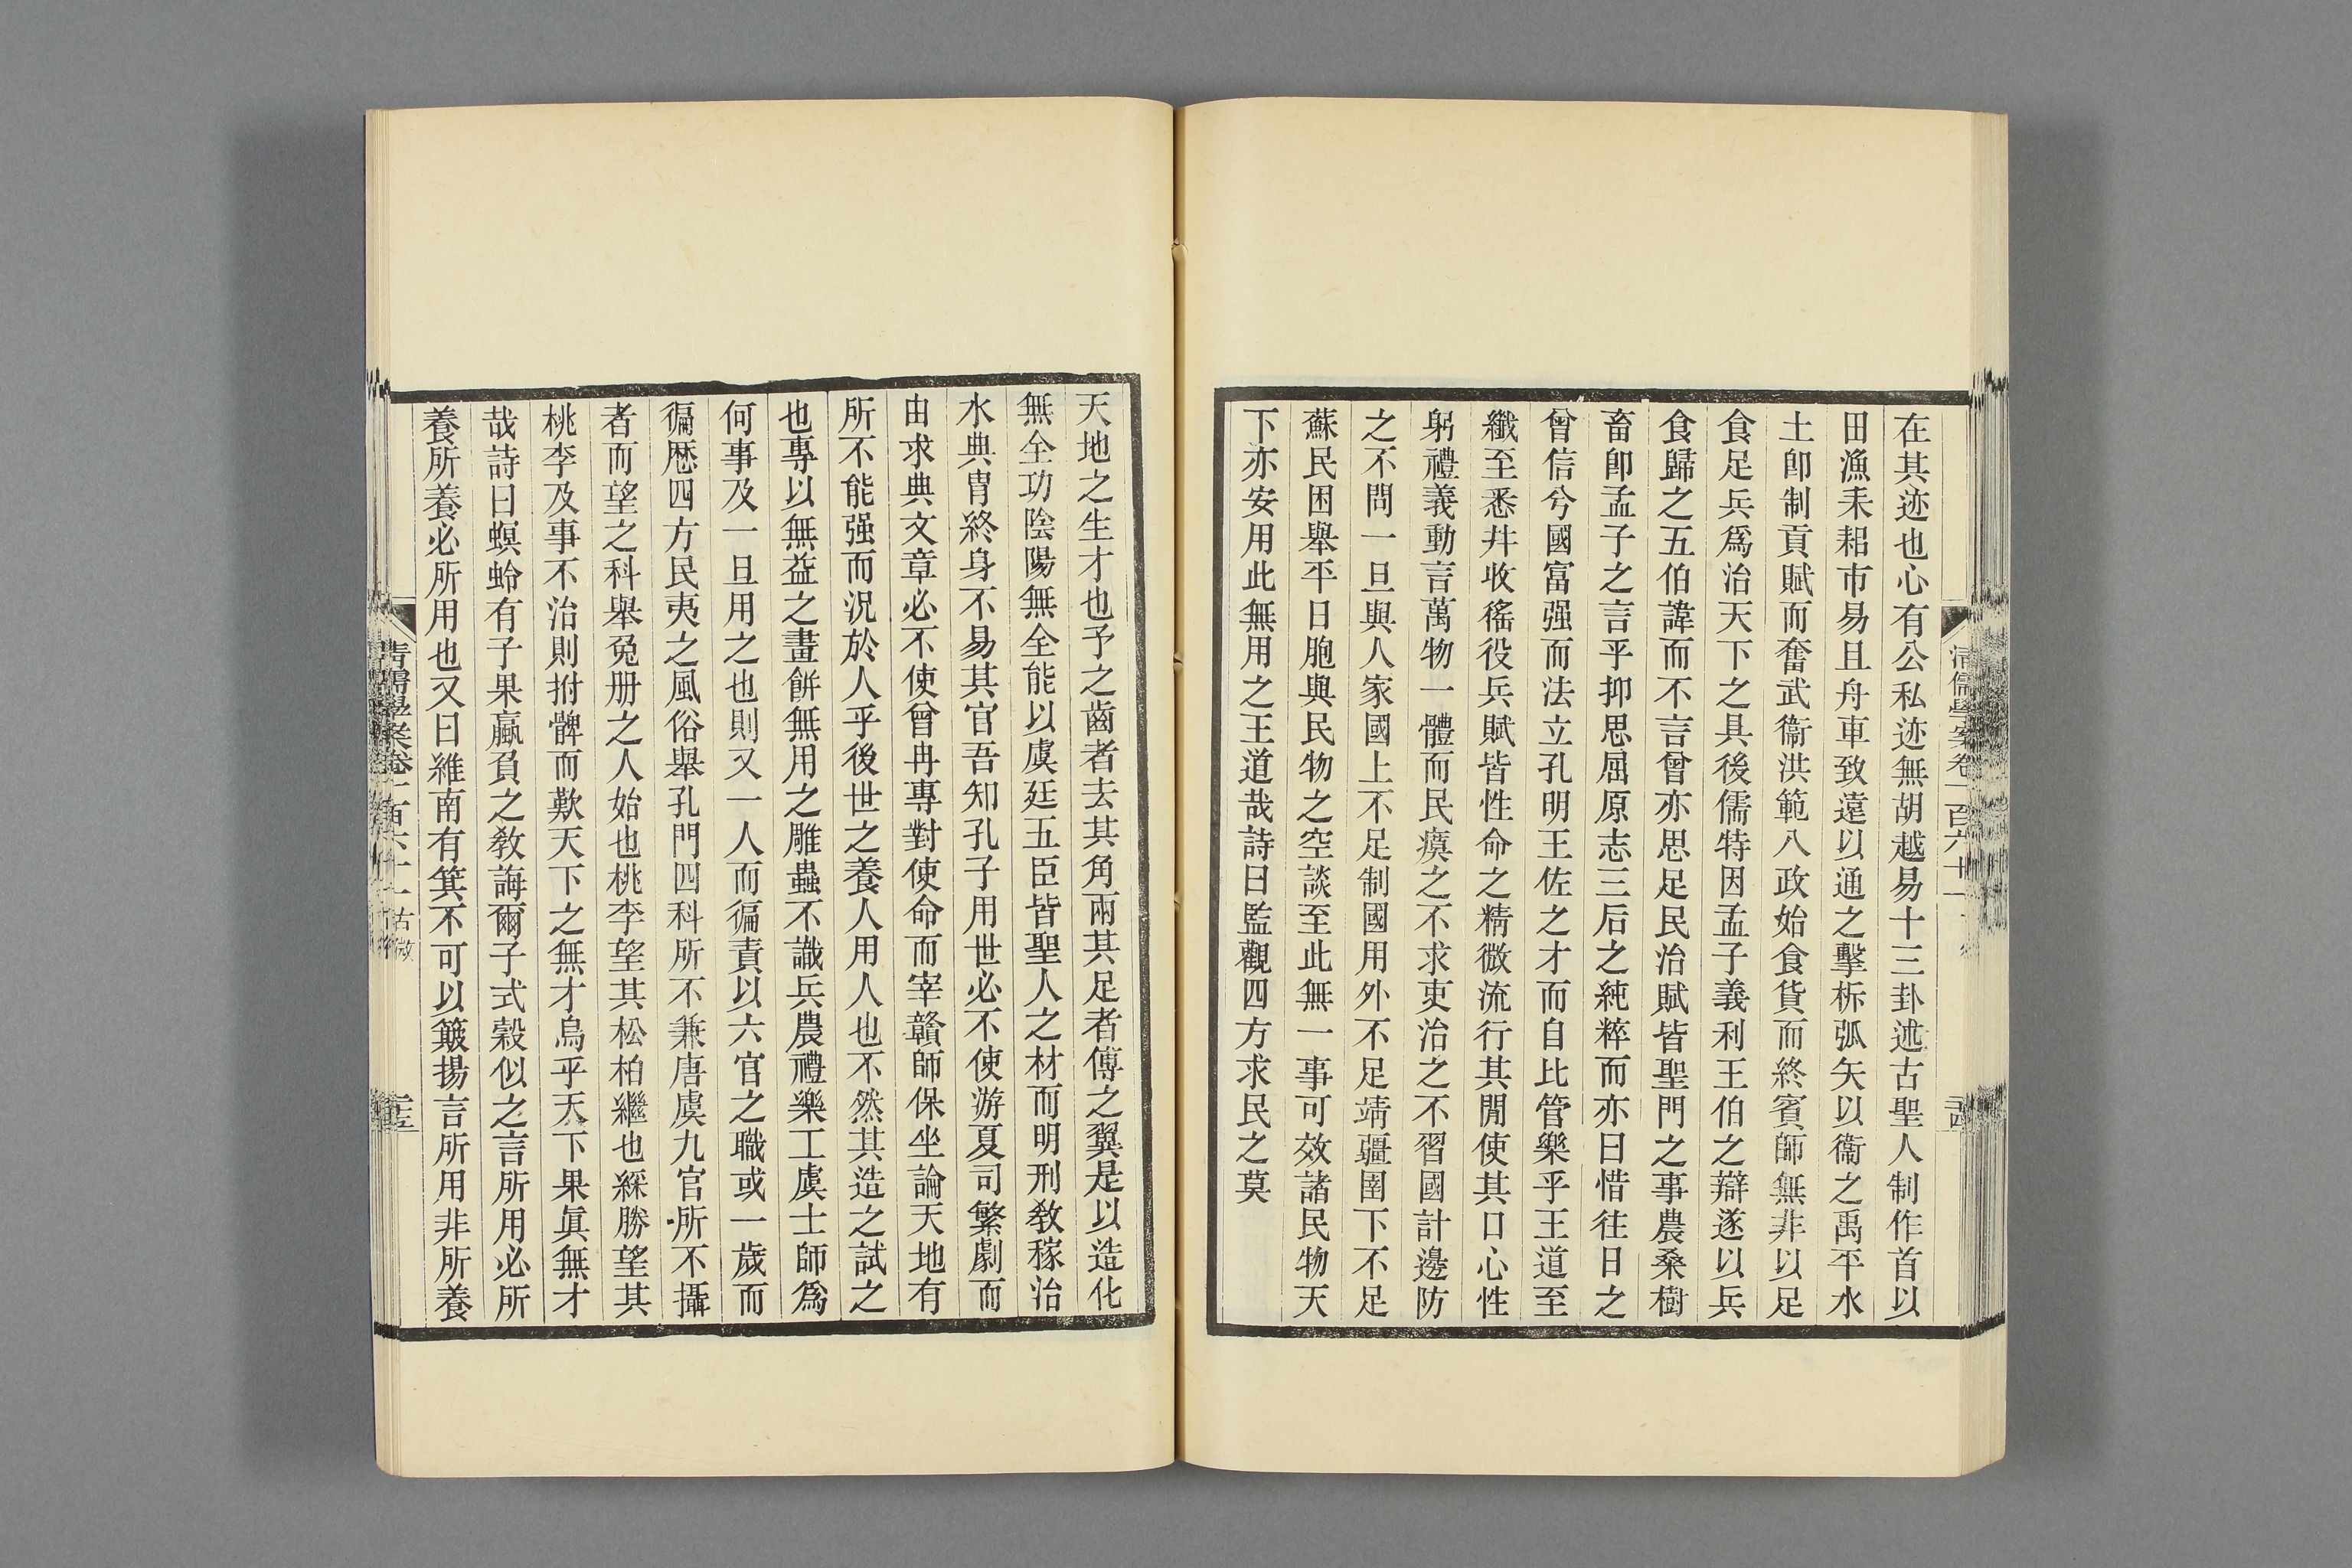 在其迹也心有公私迹無胡越易十三卦述古聖人制作首以
田漁耒耜市易且舟車致遠以通之擊柝弧矢以衞之禹平水
土卽制貢賦而奮武衞洪範八政始食貨而終賓師無非以足
食足兵爲治天下之具後儒特因孟子義利王伯之辯遂以兵
食歸之五伯諱而不言曾亦思足民治賦皆聖門之事農桑樹
畜卽孟子之言乎抑思屈原志三后之純粹而亦曰惜往日之
曾信兮國富强而法立孔明王佐之才而自比管樂乎王道至
纖至悉井收徭役兵賦皆性命之精微流行其閒使其口心性
躬禮義動言萬物一體而民瘼之不求吏治之不習國計邊防
之不問一旦與人家國上不足制國用外不足靖疆圉下不足
蘇民困舉平日胞與民物之空談至此無一事可效諸民物天
下亦安用此無用之王道哉詩曰監觀四方求民之莫
天地之生才也予之齒者去其角兩其足者傅之翼是以造化
無全功陰陽無全能以虞廷五臣皆聖人之材而明刑敎稼治
水典胄終身不易其官吾知孔子用世必不使游夏司繁劇而
由求典文章必不使曾冉專對使命而宰贛師保坐論天地有
所不能强而況於人乎後世之養人用人也不然其造之試之
也專以無益之畫餅無用之雕蟲不識兵農禮樂工虞士師爲
何事及一旦用之也則又一人而徧責以六官之職或一歲而
徧歷四方民夷之風俗舉孔門四科所不兼唐虞九官所不攝
者而望之科舉兔册之人始也桃李望其松柏繼也綵勝望其
桃李及事不治則拊髀而歎天下之無才烏乎天下果眞無才
哉詩曰螟蛉有子果蠃負之敎誨爾子式穀似之言所用必所
養所養必所用也又曰維南有箕不可以簸揚言所用非所養
清儒學案卷一百六十一 古微